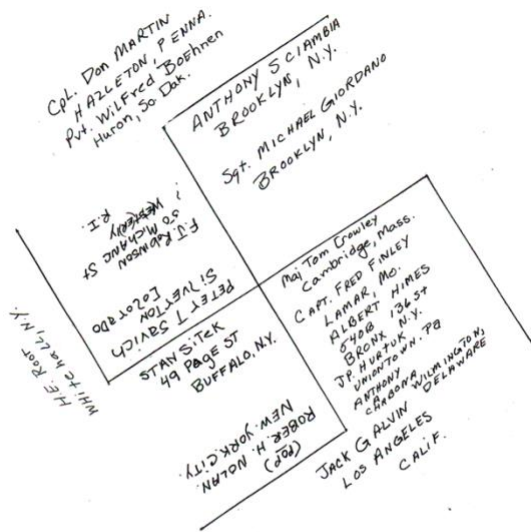 Cpl. Don MARTIN
HAZLETON, PENNA.
Pvt. WilFred Boehnen
Huron, So Dak.
ANTHONY SCIAMBIA
BROOKLYN, N.Y.
Sgt. MICHAEL GIORDANO
BROOKLYN, N.Y.
F.J. Robinson
50 Michanic St
WESTERLY
R.I.
PETER T Savich
SilVERTON
COLORADO
H.E. ROOT
White hall, N.Y.
STAN SiTEK
49 PAGE ST
BUFFALO, N.Y.
ROBER. H. NOLAN
(POP)
NEW. YORK. CITY.
Maj Tom Crowley
Cambridge, Mass.
CAPT. FRED FINLEY
LAMAR, MO.
ALBERT HIMES
540B 136 St
BRONX N.Y.
J.P. HURTUK
UNIONTOWN. Pa
ANTHONY
CARBONA WILMINGTON,
DELAWARE
JACK GALVIN
LOS ANGELES
CALIF.